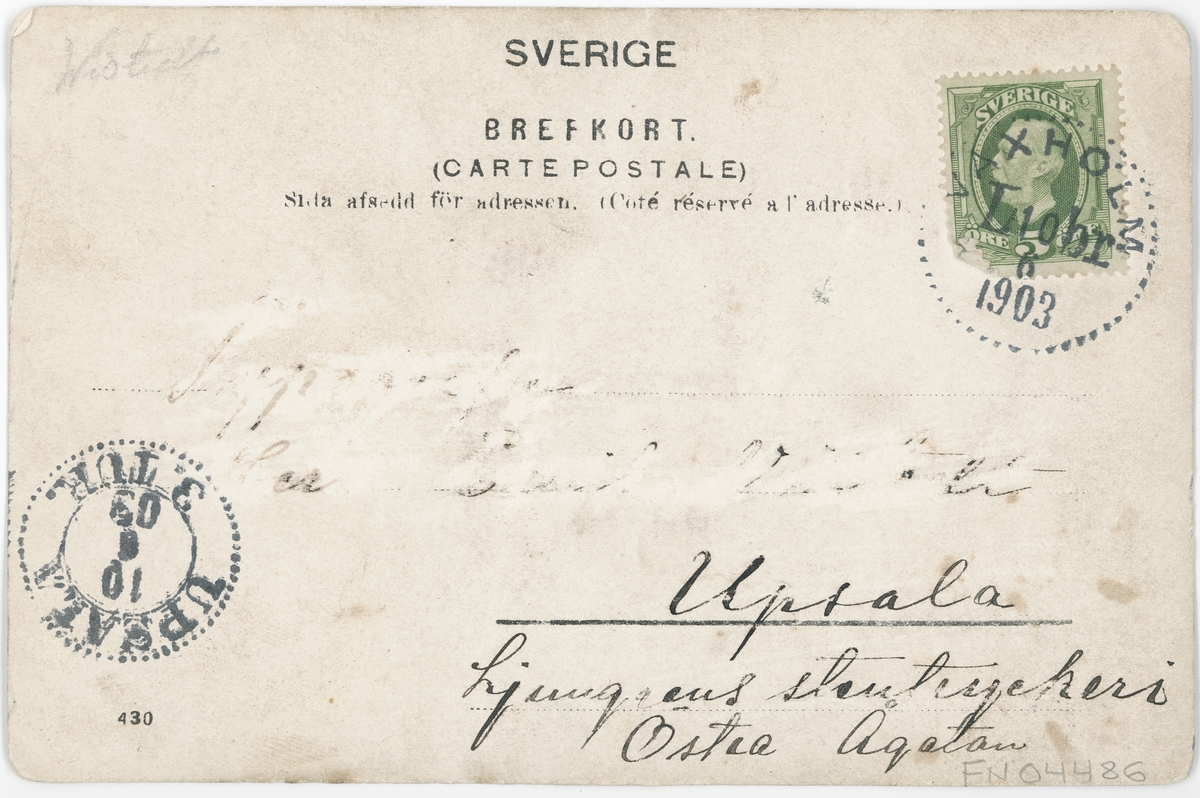 Wistedt
SVERIGE
BREFKORT.
(CARTE POSTALE)
Sida afsedd för adressen. (Coté réservé a l'adresse.)
SVERIGE
5
ÖRE
VAXHOLM
10
6
1903
3 TUR
03
6
10
UPSALA
Upsala
Ljunggrens stentryckeri
Östra Ågatan
430
FN04486